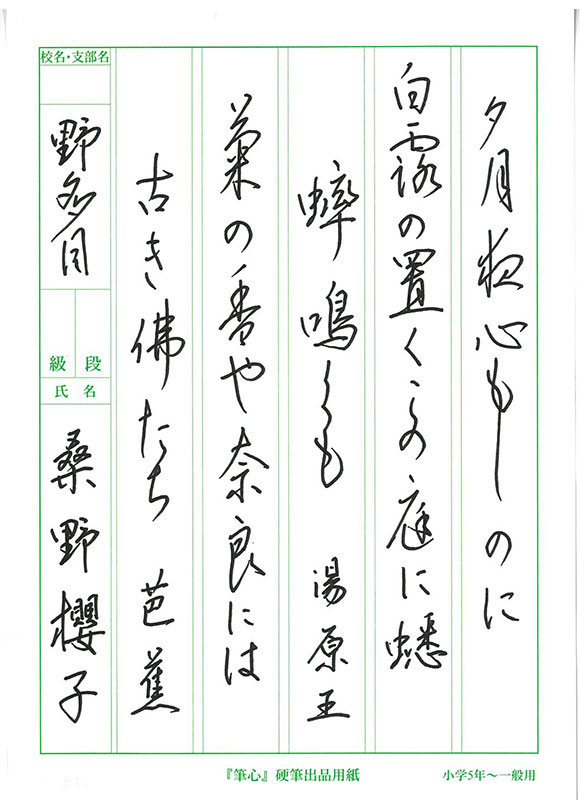 夕月夜心もしのに
白露の置くこの庭に蟋
蟀鳴くも 湯原王
菊の香や奈良には
古き佛たち 芭蕉
校名・支部名
野多目
級 段
氏 名
桑野櫻子
『筆心』硬筆出品用紙
小学5年～一般用